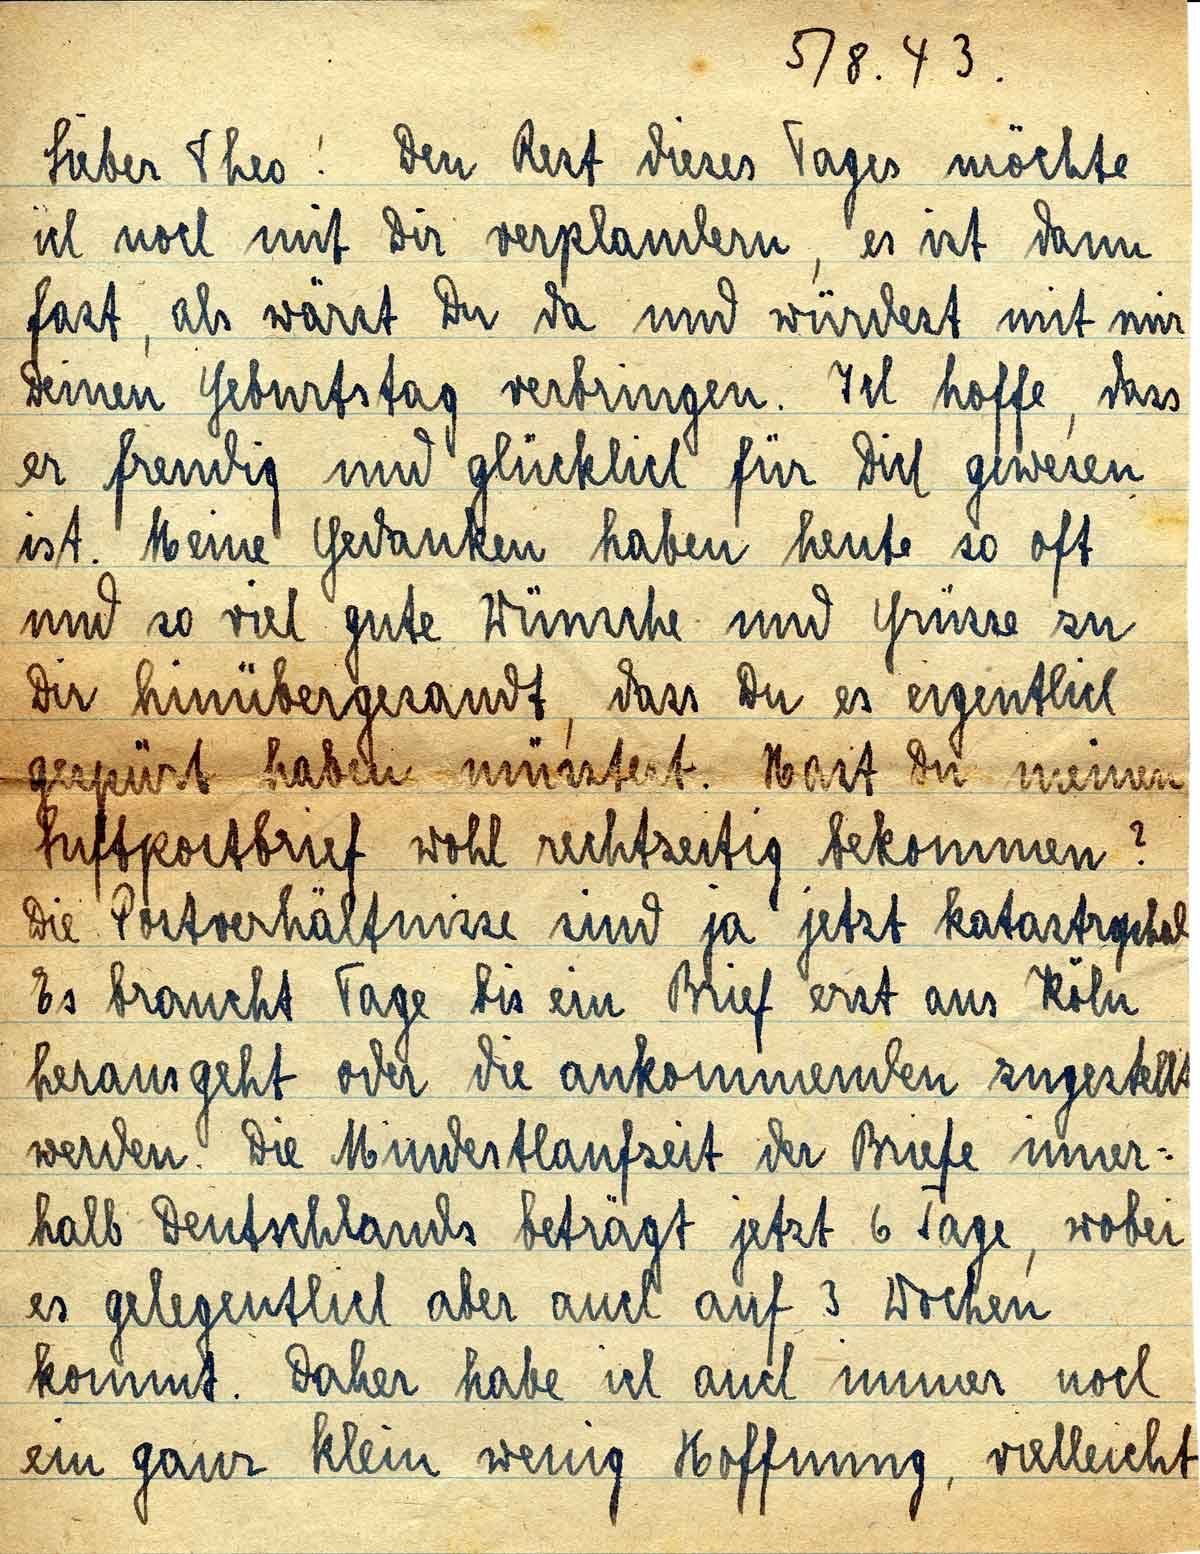 5/8.43.
Lieber Theo! Den Rest dieses Tages möchte
ich noch mit Dir verplaudern, es ist dann
fast, als wärst Du da und würdest mit mir
Deinen Geburtstag verbringen. Ich hoffe, dass
er freudig und glücklich für Dich gewesen
ist. Meine Gedanken haben heute so oft
und so viel gute Wünsche und Grüsse zu
Dir hinübergesandt, dass Du es eigentlich
gespürt haben müsstest. Hast Du meinen
Luftpostbrief wohl rechtzeitig bekommen?
Die Postverhältnisse sind ja jetzt katastrophal
Es braucht Tage bis ein Brief erst aus Köln
herausgeht oder die ankommenden zugestellt
werden. Die Mindestlaufzeit der Briefe inner=
halb Deutschlands beträgt jetzt 6 Tage, wobei
es gelegentlich aber auch auf 3 Wochen
kommt. Daher habe ich auch immer noch
ein ganz klein wenig Hoffnung, vielleicht